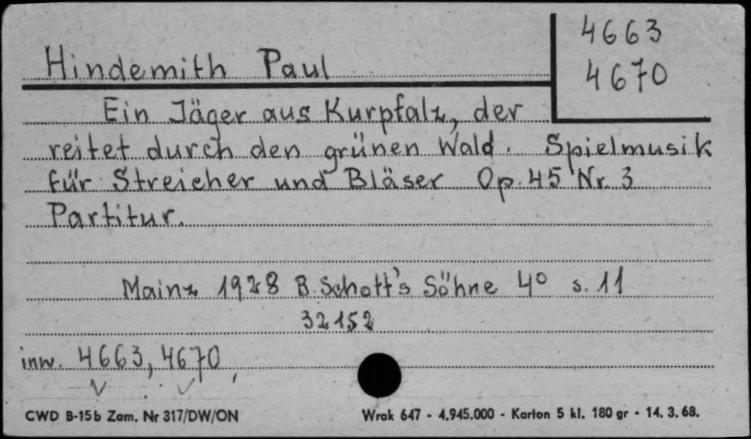 4663
Hindemith Paul
4670
Ein Jäger aus Kurpfalz, der
reitet durch den grünen Wald. Spielmusik
für Streicher und Bläser Op. 45 Nr. 3
Partitur.
Mainz 1928 B. Schott's Söhne 4° s. 11
32152
inw. 4663, 4670,
CWD B-15b Zam. Nr 317/DW/ON Wrak 647 - 4.945.000 - Karton 5 kl. 180 gr - 14. 3. 68.